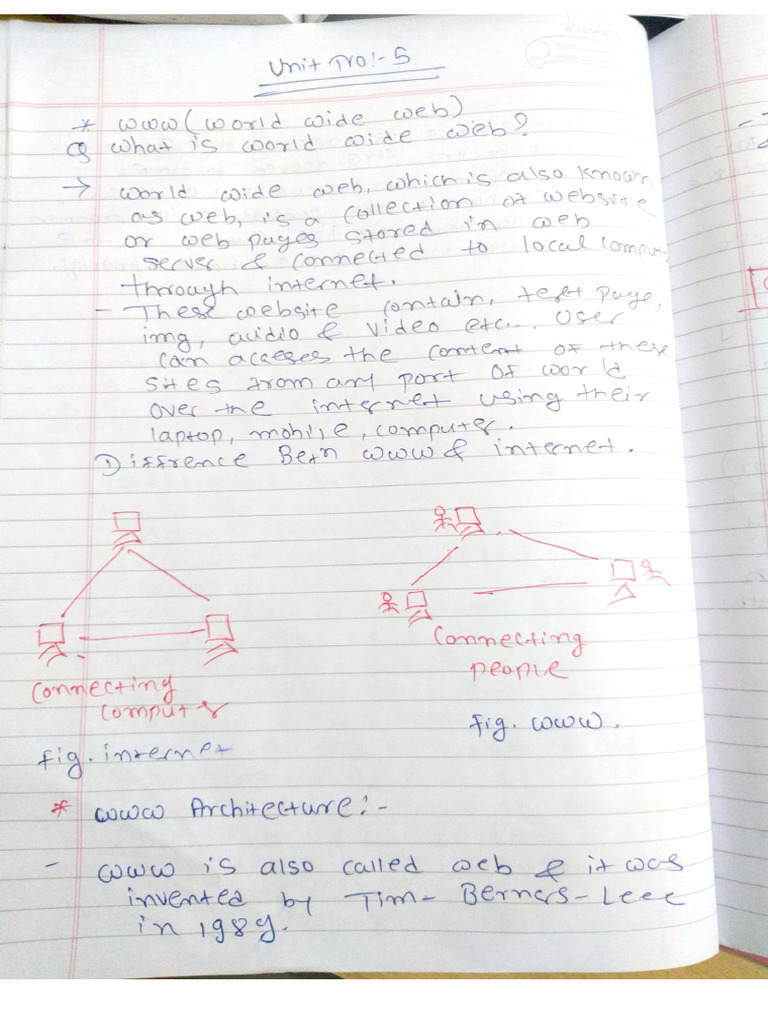 classmate
Date
Page
Unit No:- 5
* www (world wide web)
Q what is world wide web?
→ world wide web, which is also known
as web, is a collection of website
or web pages stored in web
server & connected to local comput
through internet.
- These website contain, text page,
img, audio & video etc... User
can acceses the content of these
sites from any part of world
over the internet using their
laptop, mobile, computer.
Diffrence Betn www & internet.
connecting
computer
fig. internet
connecting
people
fig. www.
* www Architecture:-
- www is also called web & it was
invented by Tim- Berners-Leee
in 1989.